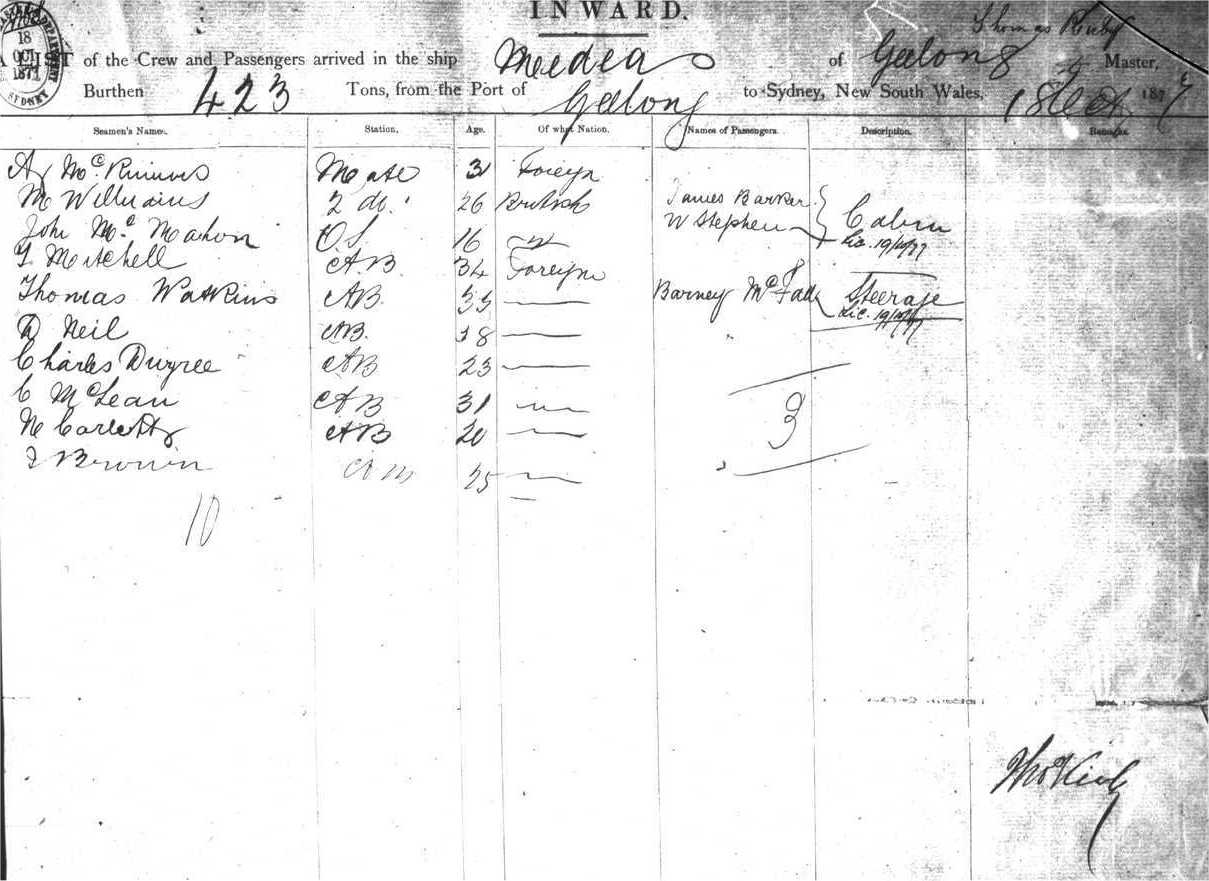 INWARD.
18
OCT
1877
SYDNEY
Thomas Kirby
A LIST of the Crew and Passengers arrived in the ship Medea of Geelong Master,
Burthen 423 Tons, from the Port of Geelong to Sydney, New South Wales, 18 Oct 1877
Seamen's Names. Station. Age. Of what Nation. Names of Passengers. Description. Remarks.
Mate 31 Foreign
M Williams 2 do. 26 British James Barker Cabin
W Stephen Lic. 19/10/77
John McMahon OS 16
Mitchell AB 34 Foreign
Thomas Watkins AB 35 Barney Steerage
Lic. 19/10/77
Neil AB. 18
Charles AB 23
C McLean AB 31
AB 20
Brown 25
3
10
Thos Kirby